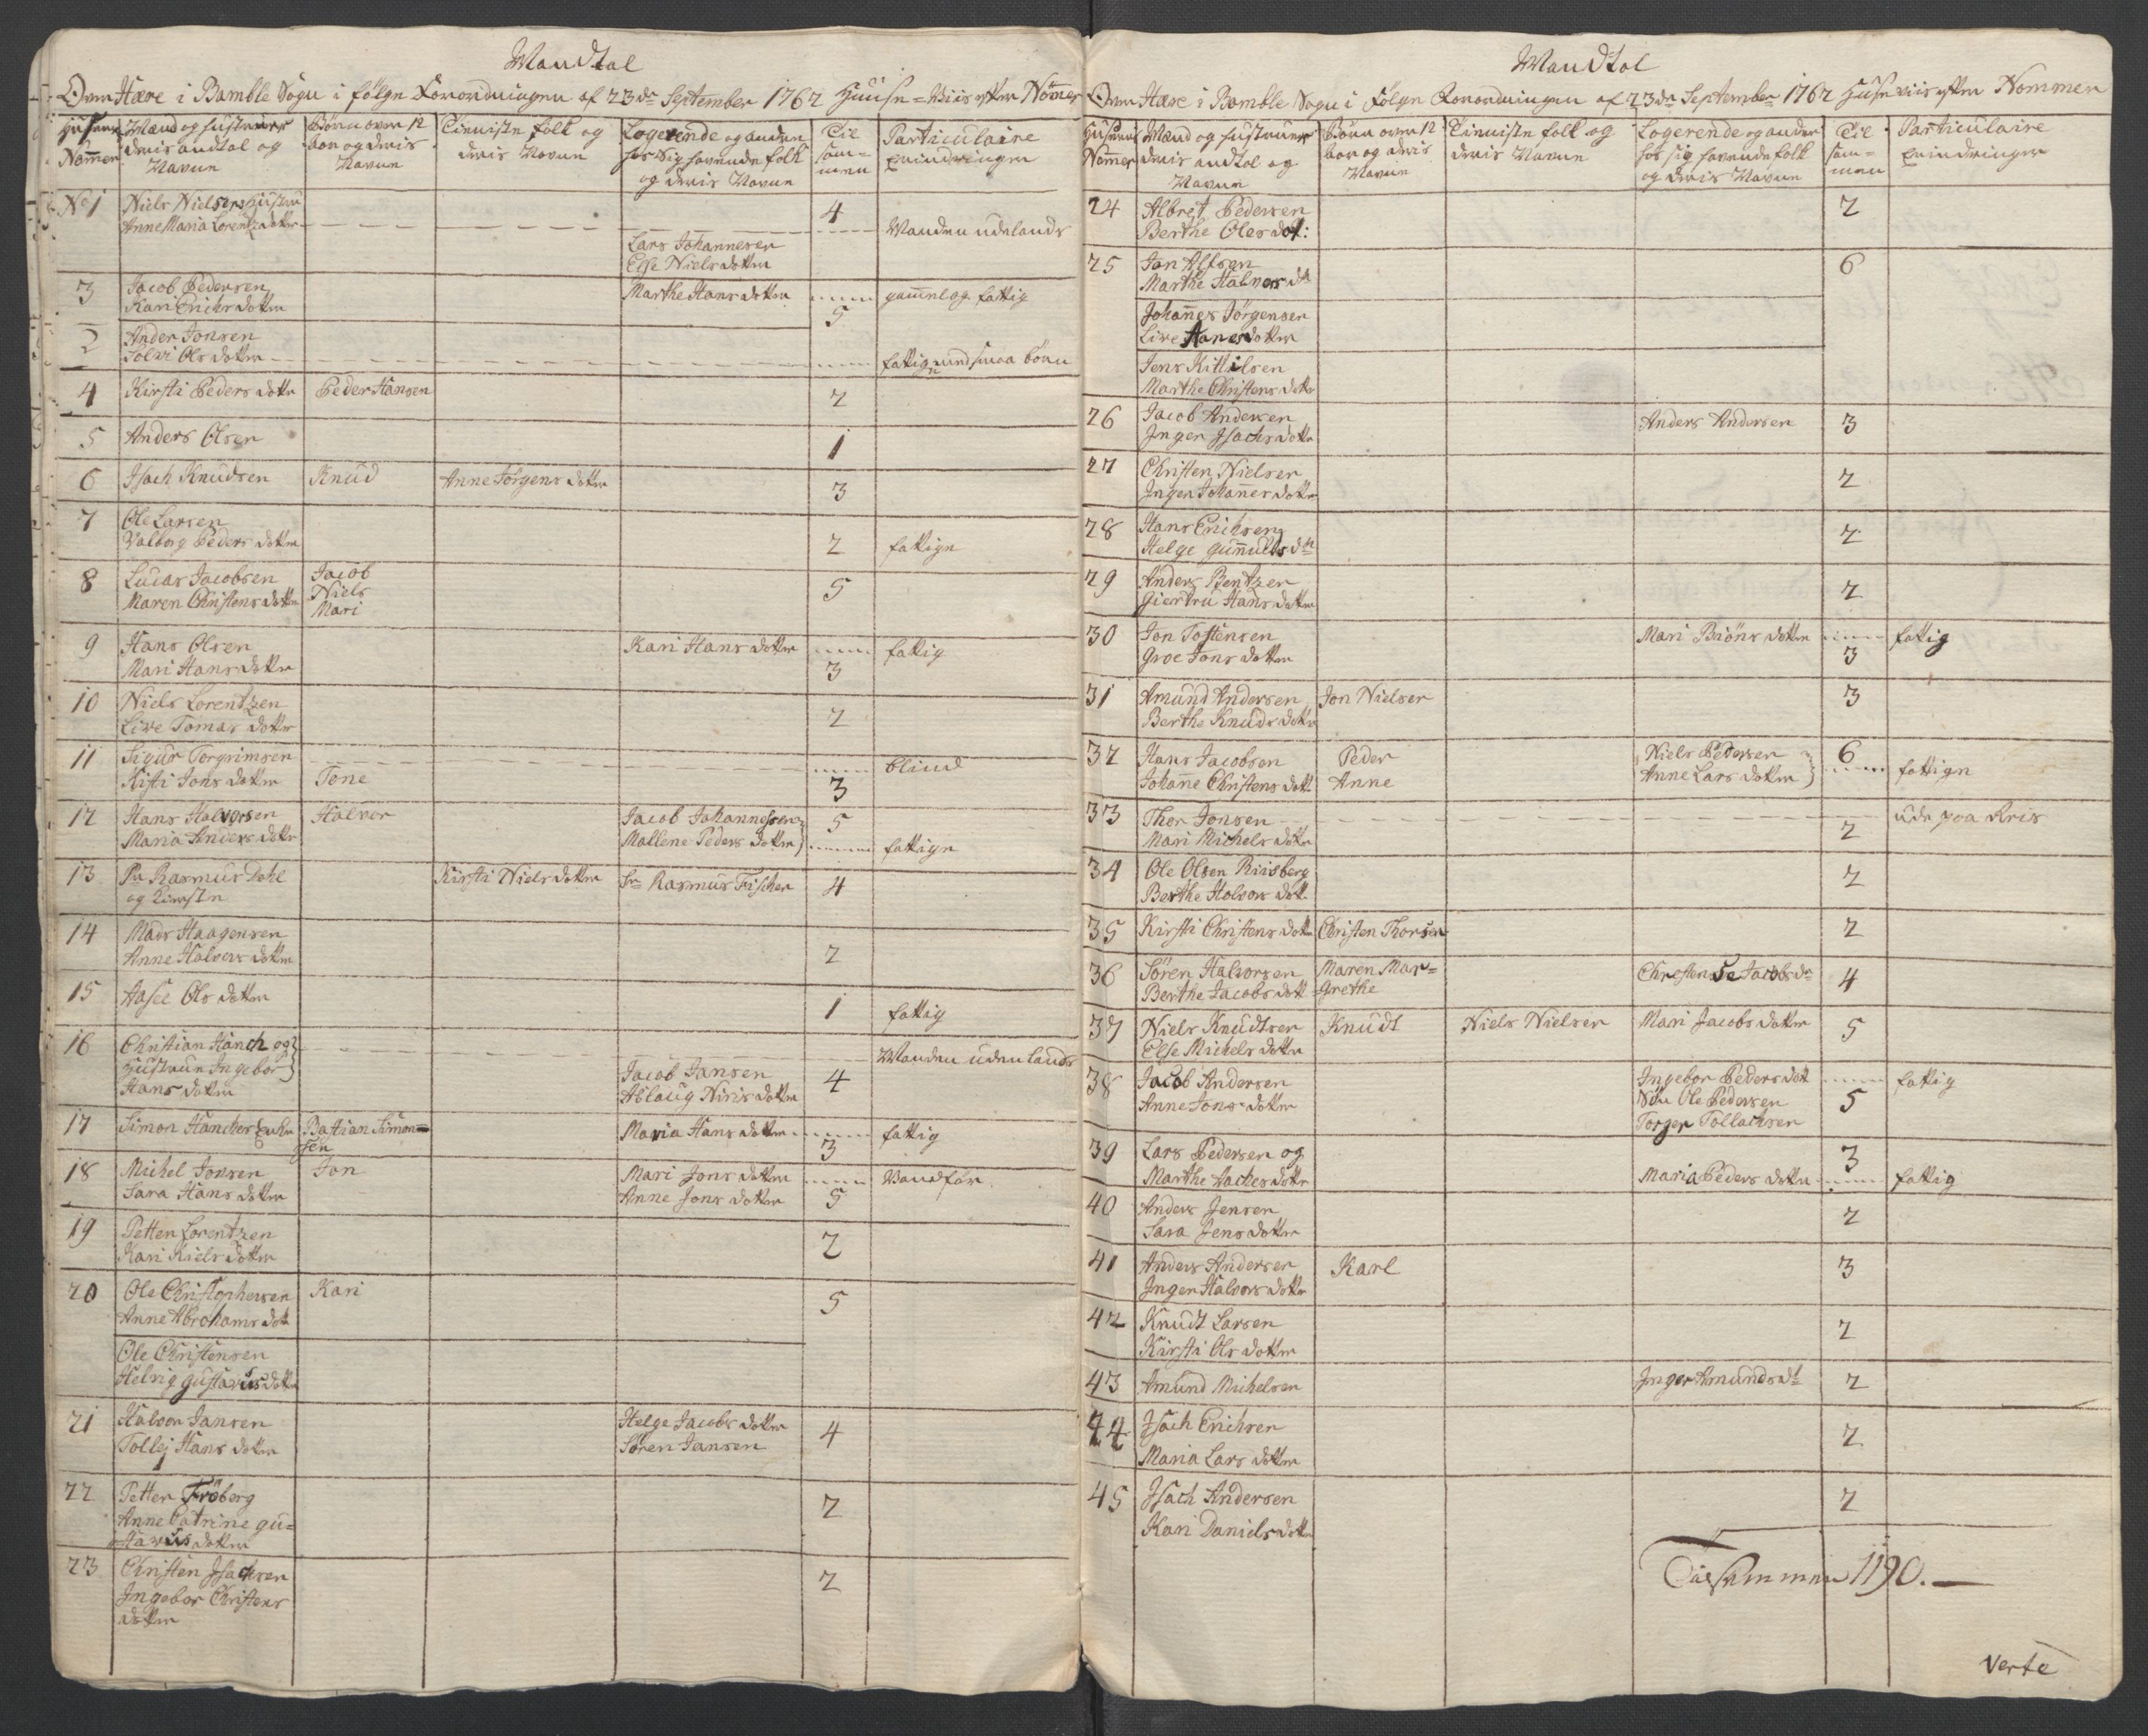 Mandtal
Over Hære i Bamble Sogn i følge Forordningen af 23de September 1762 Huuse=Viis efter Nommer
Husenes Mand og Hustruers Børn over 12 Tieniste folk og Logerende og anden Til Particulaire
Nommer deris andtal og Aar og deris deris Navne hos sig havende folk Sam= Erindringer
Navne Navne og deris Navne men
No 1 Niels Nielsens Hustru 4
Anne Maria Lorentz dotter Manden udelands
Lars Johannesen
Else Niels dotter
3 Jacob Pedersen Marthe Hans dotter gammel og fattig
Kari Erichs dotter 5
2 Ander Jonsen
Tolvi Ols dotter fattige med smaa børn
4 Kirsti Peders dotter Peder Hansen 2
5 Anders Olsen 1
6 Isach Knudsen Knud Anne Jørgens dotter 3
7 Ole Larsen
Valborg Peders dotter 2 fattige
8 Lucas Jacobsen Jacob 5
Maren Christens dotter Niels
Mari
9 Hans Olsen Kari Hans dotter fattig
Mari Hans dotter 3
10 Niels Lorentzen
Live Tomas dotter 2
11 Sigur Torgrimsen blind
Kisti Jons dotter Tone 3
12 Hans Halvorsen Halvor Jacob Johannessen 5
Maria Anders dotter Mallene Peders dotter fattige
13 Rasmus Dahl Kirsti Niels dotter Sr Rasmus Fischer 4
og Kierste
14 Mads Haagensen
Anne Halvors dotter 2
15 Aasee Ols dotter 1 fattig
16 Christian Hanch og Manden uden lands
Hustrue Ingebor Jacob Jansen 4
Hans dotter Aslaug Niris dotter
17 Simon Hanches Enke Bastian Simon= Maria Hans dotter fattig
sen 3
18 Michel Jonsen Jon Mari Jons dotter Vandfør
Sara Hans dotter Anne Jons dotter 5
19 Petter Lorentzen 2
Kari Niels dotter
20 Ole Christophersen Kari 5
Anne Abrahams dott
Ole Christensen
Helvig Gustavus dotter
21 Halvor Jansen Helge Jacobs dotter 4
Tollej Hans dotter Søren Jansen
22 Petter Frøberg 2
Anne Catrine Gu=
stavus dotter
23 Christen Isachsen 2
Ingebor Christens
dotter
Mandtal
Over Hære i Bamble Sogn i Følge Forordningen af 23de September 1762 Huse viis efter Nommer
Husenes Mand og Hustruer Børn over 12 Tieniste folk og Logerende og anden Til Particulaire
Nommer deris andtal og Aar og deris deris Navne hos sig havende folk Sam= Erindringer
Navne Navne og deris Navne men
24 Albret Pedersen 2
Berthe Oles dot:
25 Jan Alfsen 6
Marthe Halvors dt
Johannes Jørgensen
Live Hanes dotter
Jens Kittilsen
Marthe Christens dotter
26 Jacob Andersen Anders Andersen 3
Inger Isachs dotter
27 Christen Nielsen 2
Inger Johannes dotter
28 Hans Erichsen 2
Helge Gunnulds dtr
29 Anders Bentzen 2
Giertru Hans dotter
30 Jon Tostensen Mari Biöns dotter fattig
Groe Jons dotter 3
31 Amund Andersen Jon Nielsen 3
Berthe Knuds dotter
32 Hans Jacobsen Peder Niels Pedersen 6
Johanne Christens dott Anne Anne Lars dotter fattige
33 Thor Jonsen ude paa Reis
Mari Michels dotter 2
34 Ole Olsen Riisberg 2
Berthe Halvors dott
35 Kirsti Christens dotter Christen Thorsen 2
36 Søren Halvorsen Maren Mar= Christense Jacobs dr 4
Berthe Jacobs dott Grethe
37 Niels Knudtsen Knudt Niels Nielsen Mari Jacobs dotter 5
Else Michels dotter
38 Jacob Andersen Ingebor Peders dott fattig
Anne Jons dotter Ole Pedersen 5
Torger Tollachsen
39 Lars Pedersen og 3
Marthe Aaches dotter Maria Peders dotter fattig
40 Anders Jensen 2
Sara Jens dotter
41 Anders Andersen Karl 3
Inger Halvors dotter
42 Knudt Larsen 2
Kirsti Ols dotter
43 Amund Michelsen Inger Amunds dt 2
44 Isach Erichsen 2
Maria Lars dotter
45 Isach Andersen 2
Kari Daniels dotter
Tilsammen 1190.
verte